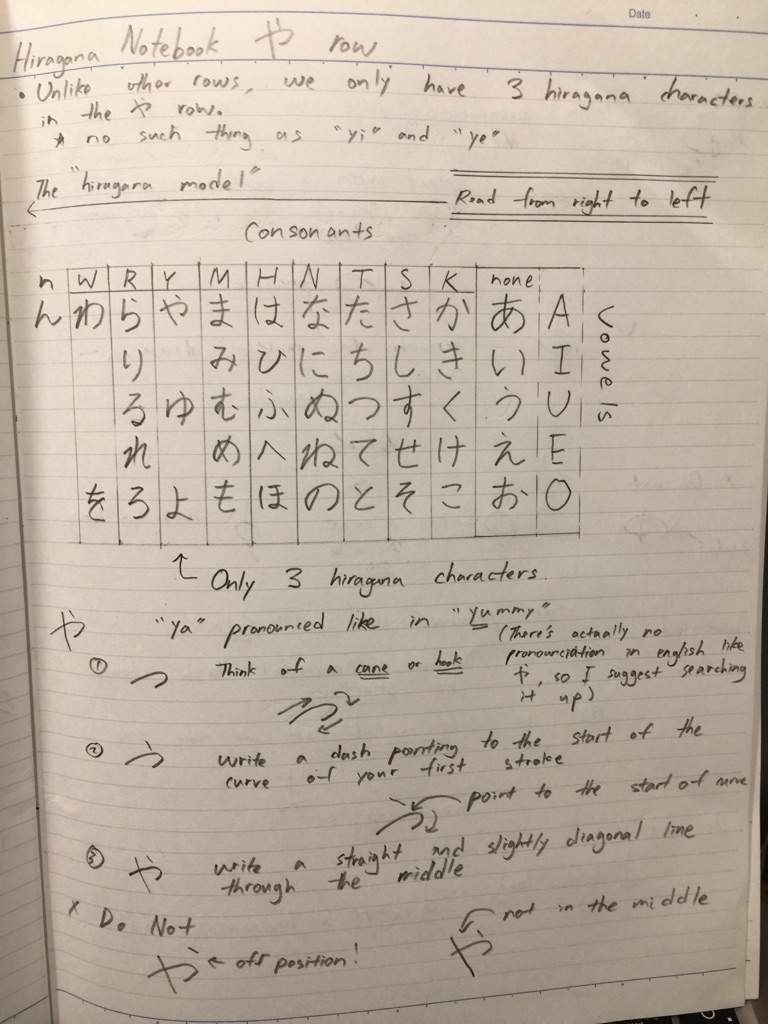 Date
Hiragana Notebook や row
• Unlike other rows, we only have 3 hiragana characters
in the や row.
* no such thing as "yi" and "ye"
The "hiragana model"
Read from right to left
Consonants
n W R Y M H N T S K none
ん わ ら や ま は な た さ か あ A
り み ひ に ち し き い I
る ゆ む ふ ぬ つ す く う U
れ め へ ね て せ け え E
を ろ よ も ほ の と そ こ お O
Vowels
Only 3 hiragana characters.
や "ya" pronounced like in "yummy"
(There's actually no
pronounciation in english like
や, so I suggest searching
it up)
① Think of a cane or hook
② Write a dash pointing to the start of the
curve of your first stroke
point to the start of curve
③ や write a straight and slightly diagonal line
through the middle
x Do Not
や off position!
not in the middle
や